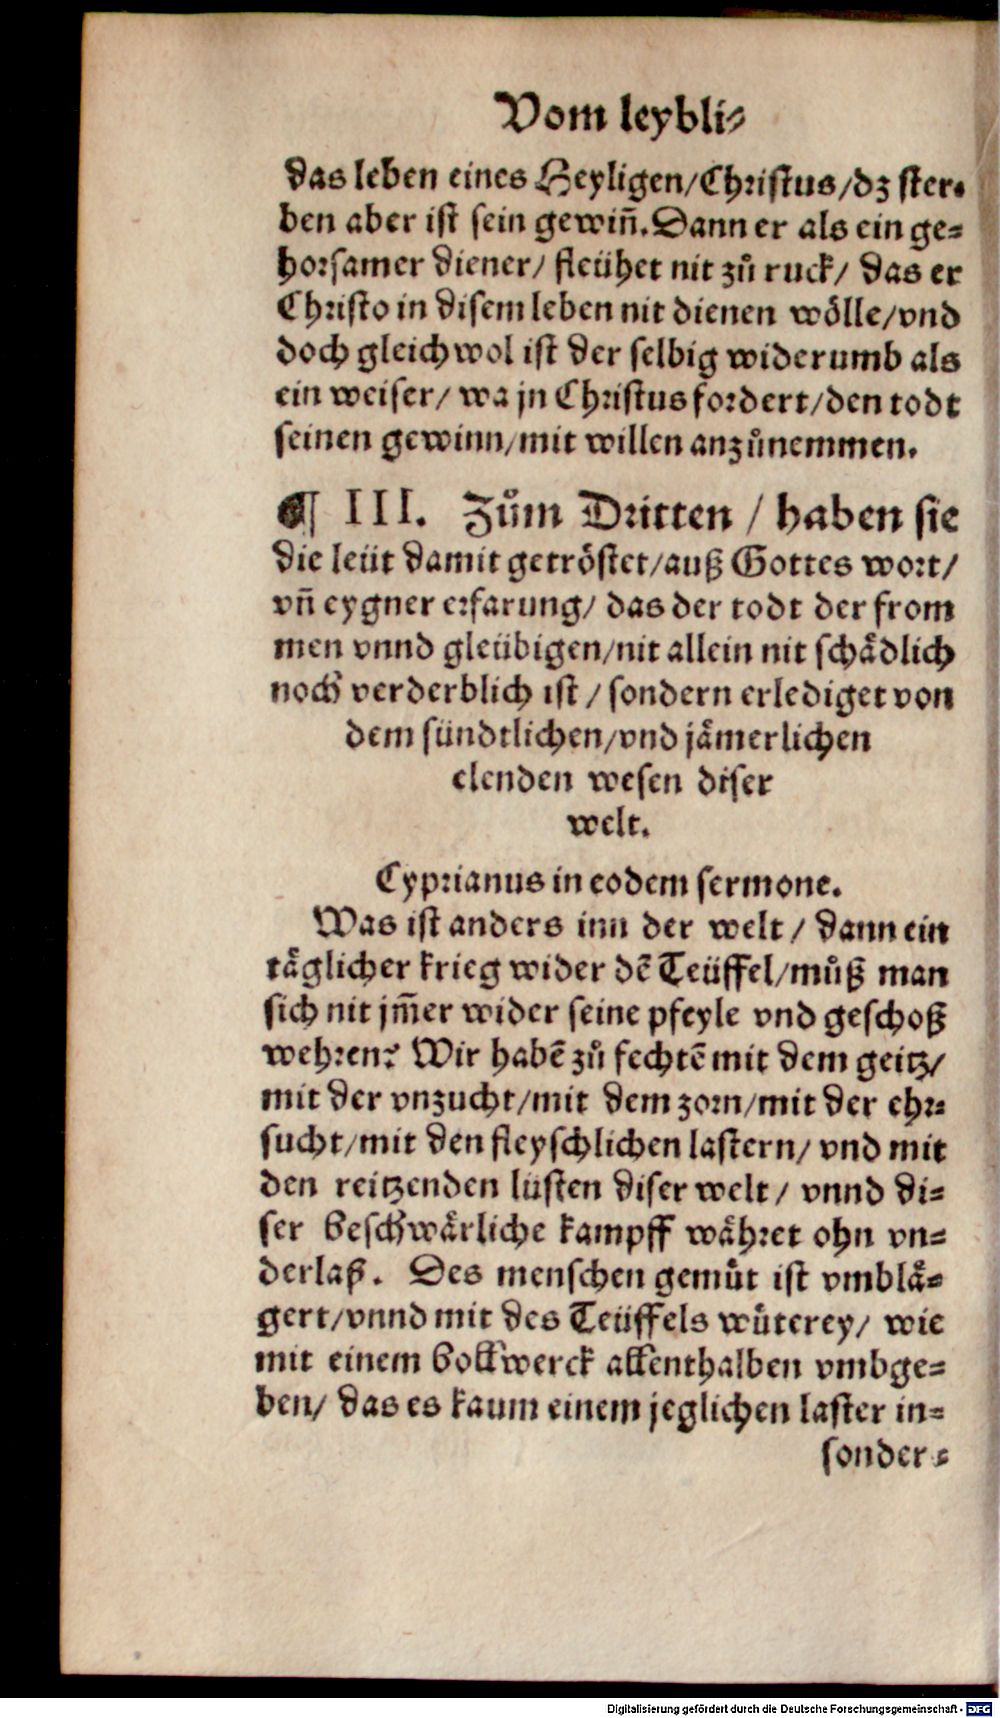 Vom leybli-
das leben eines Heyligen/Christus/dz ster-
ben aber ist sein gewiñ. Dann er als ein ge-
horsamer diener/ fleühet nit zů ruck/ das er
Christo in disem leben nit dienen wölle/vnd
doch gleichwol ist der selbig widerumb als
ein weiser/ wa jn Christus fordert/den todt
seinen gewinn/mit willen anzůnemmen.
¶ III. Zům Dritten / haben sie
die leüt damit getröstet/auß Gottes wort/
vñ eygner erfarung/ das der todt der from
men vnnd gleübigen/nit allein nit schädlich
noch verderblich ist / sondern erlediget von
dem sündtlichen/vnd jämerlichen
elenden wesen diser
welt.
Cyprianus in eodem sermone.
Was ist anders inn der welt / dann ein
täglicher krieg wider dē Teüffel/můß man
sich nit jm̃er wider seine pfeyle vnd geschoß
wehren? Wir habē zů fechtē mit dem geitz/
mit der vnzucht/mit dem zorn/mit der ehr-
sucht/mit den fleyschlichen lastern/ vnd mit
den reitzenden lüsten diser welt / vnnd di-
ser beschwärliche kampff währet ohn vn-
derlaß. Des menschen gemüt ist vmblä-
gert/vnnd mit des Teüffels wüterey/ wie
mit einem bollwerck allenthalben vmbge-
ben/ das es kaum einem jeglichen laster in-
sonder-
Digitalisierung gefördert durch die Deutsche Forschungsgemeinschaft - DFG